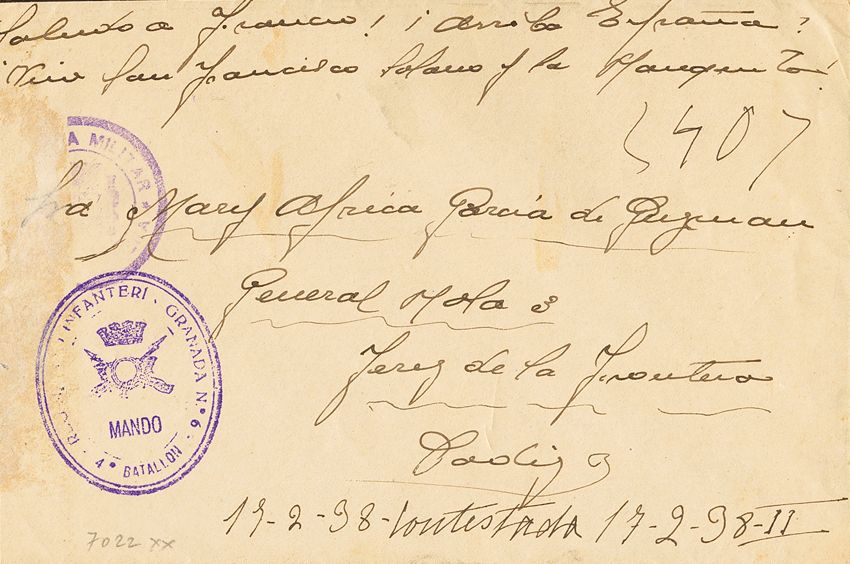 Saludo a Franco! ¡Arriba España!
¡Viva San Francisco Solano y la Manquita!
Sra Mary Africa Garcia de Guzman
General Mola 3
Jerez de la Frontera
Cadiz
17-2-38-Contestada 17-2-38-II
A MILITAR
INFANTERI · GRANADA N.º 6 ·
MANDO
4º BATALLON
7022 xx